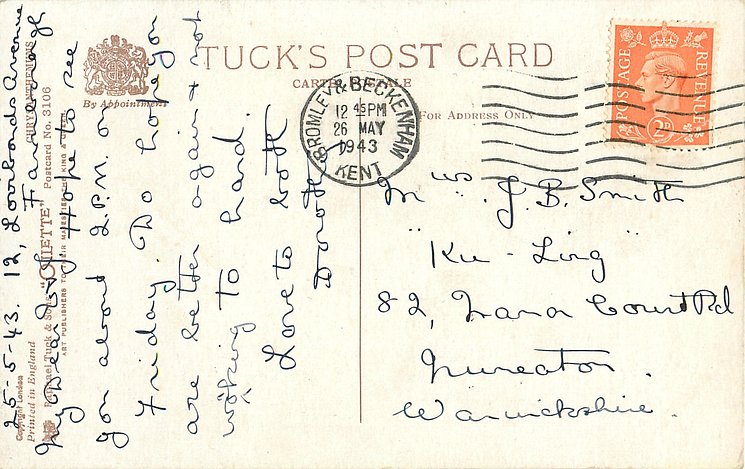 TUCK'S POST CARD
CARTE POSTALE
By Appointment
For Address Only
BROMLEY & BECKENHAM
12 45 PM
26 MAY
1943
KENT
POSTAGE
REVENUE
2D
Mrs. J. B. Smith
"Ku-Ling"
82, Court Rd
Nuneaton
Warwickshire.
25-5-43. 12, Lombards Avenue
Farnborough
My Dear Hope to see
you about 2.P.M. on
Friday. Do hope you
are better again & not
woking to hard.
Love to both
Doroth
Copyright London
Printed in England
Raphael Tuck & Sons' "OILETTE"
Postcard No. 3106
CHRYSANTHEMUMS
ART PUBLISHERS TO THEIR MAJESTIES THE KING & QUEEN